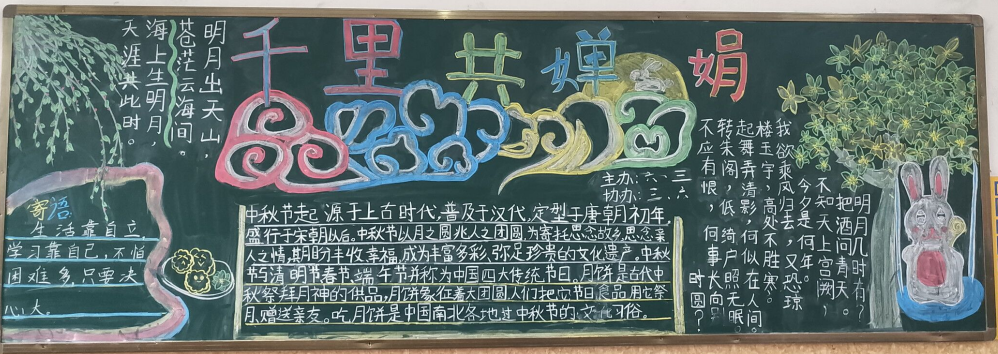 千里共婵娟
明月出天山，
苍茫云海间。
海上生明月，
天涯共此时。
主办：六、三
协办：三、六
寄语：
生活靠自立
学习靠自己，不怕
困难多，只要决
心大。
中秋节起源于上古时代，普及于汉代，定型于唐朝初年，
盛行于宋朝以后。中秋节以月之圆兆人之团圆，为寄托思念故乡思念亲
人之情，期盼丰收幸福，成为丰富多彩、弥足珍贵的文化遗产。中秋
节与清明节春节、端午节并称为中国四大传统节日。月饼是古代中
秋祭拜月神的供品，月饼象征着大团圆人们把它节日食品用它祭
月、赠送亲友。吃月饼是中国南北各地过中秋节的文化习俗。
明月几时有？
把酒问青天。
不知天上宫阙，
今夕是何年。
我欲乘风归去，又恐琼
楼玉宇，高处不胜寒。
起舞弄清影，何似在人间。
转朱阁，低绮户照无眠。
不应有恨，何事长向
时圆？